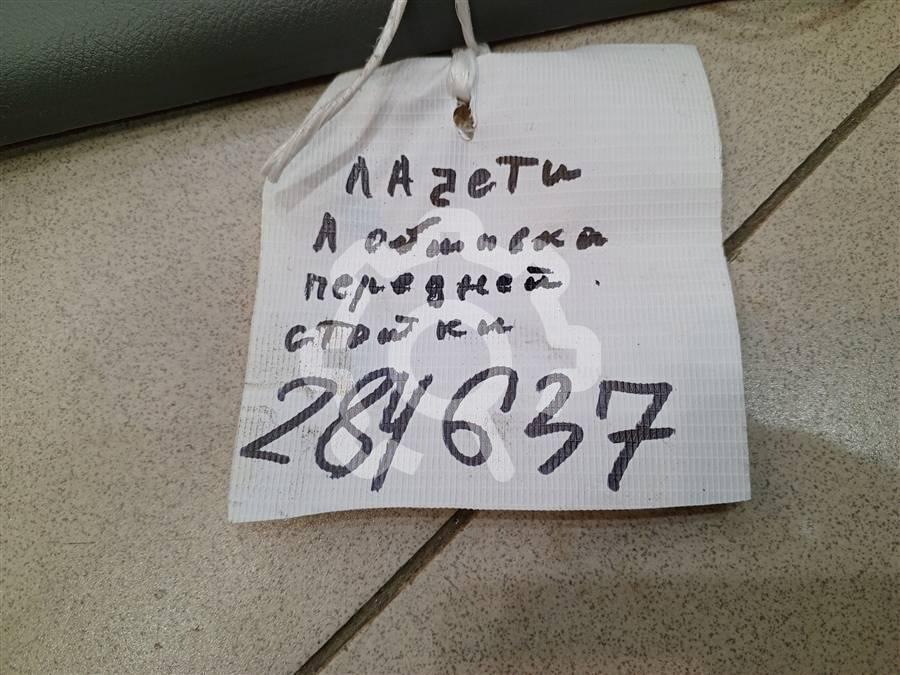 ЛАчеТи
Л обшивка
передней
стойки
284637